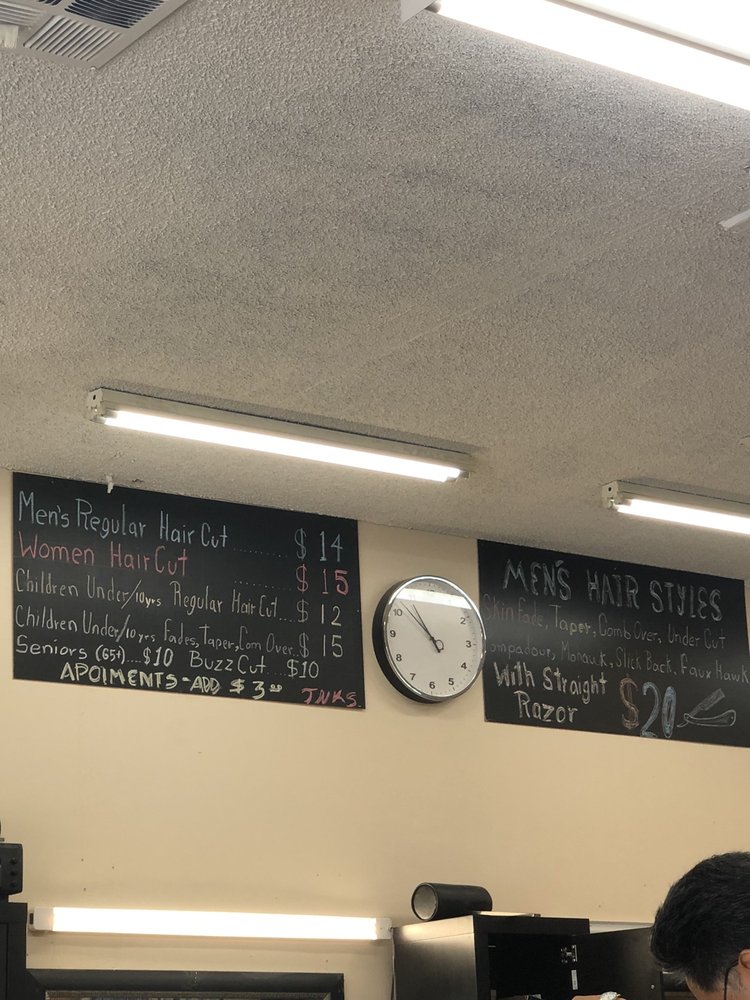 Men's Regular Hair Cut ......... $ 14
Women Hair Cut ......... $ 15
Children Under/10yrs Regular Hair Cut... $ 12
Children Under/10yrs Fades, Taper, Com Over.. $ 15
Seniors (65+).... $10 Buzz Cut .... $10
APOIMENTS - ADD $ 3.00 TNKS.
10
2
9
3
8
4
7
6
5
MEN'S HAIR STYLES
Skin Fade, Taper, Comb Over, Under Cut
ompadour, Mohawk, Slick Back, Faux Hawk
With Straight
Razor $20